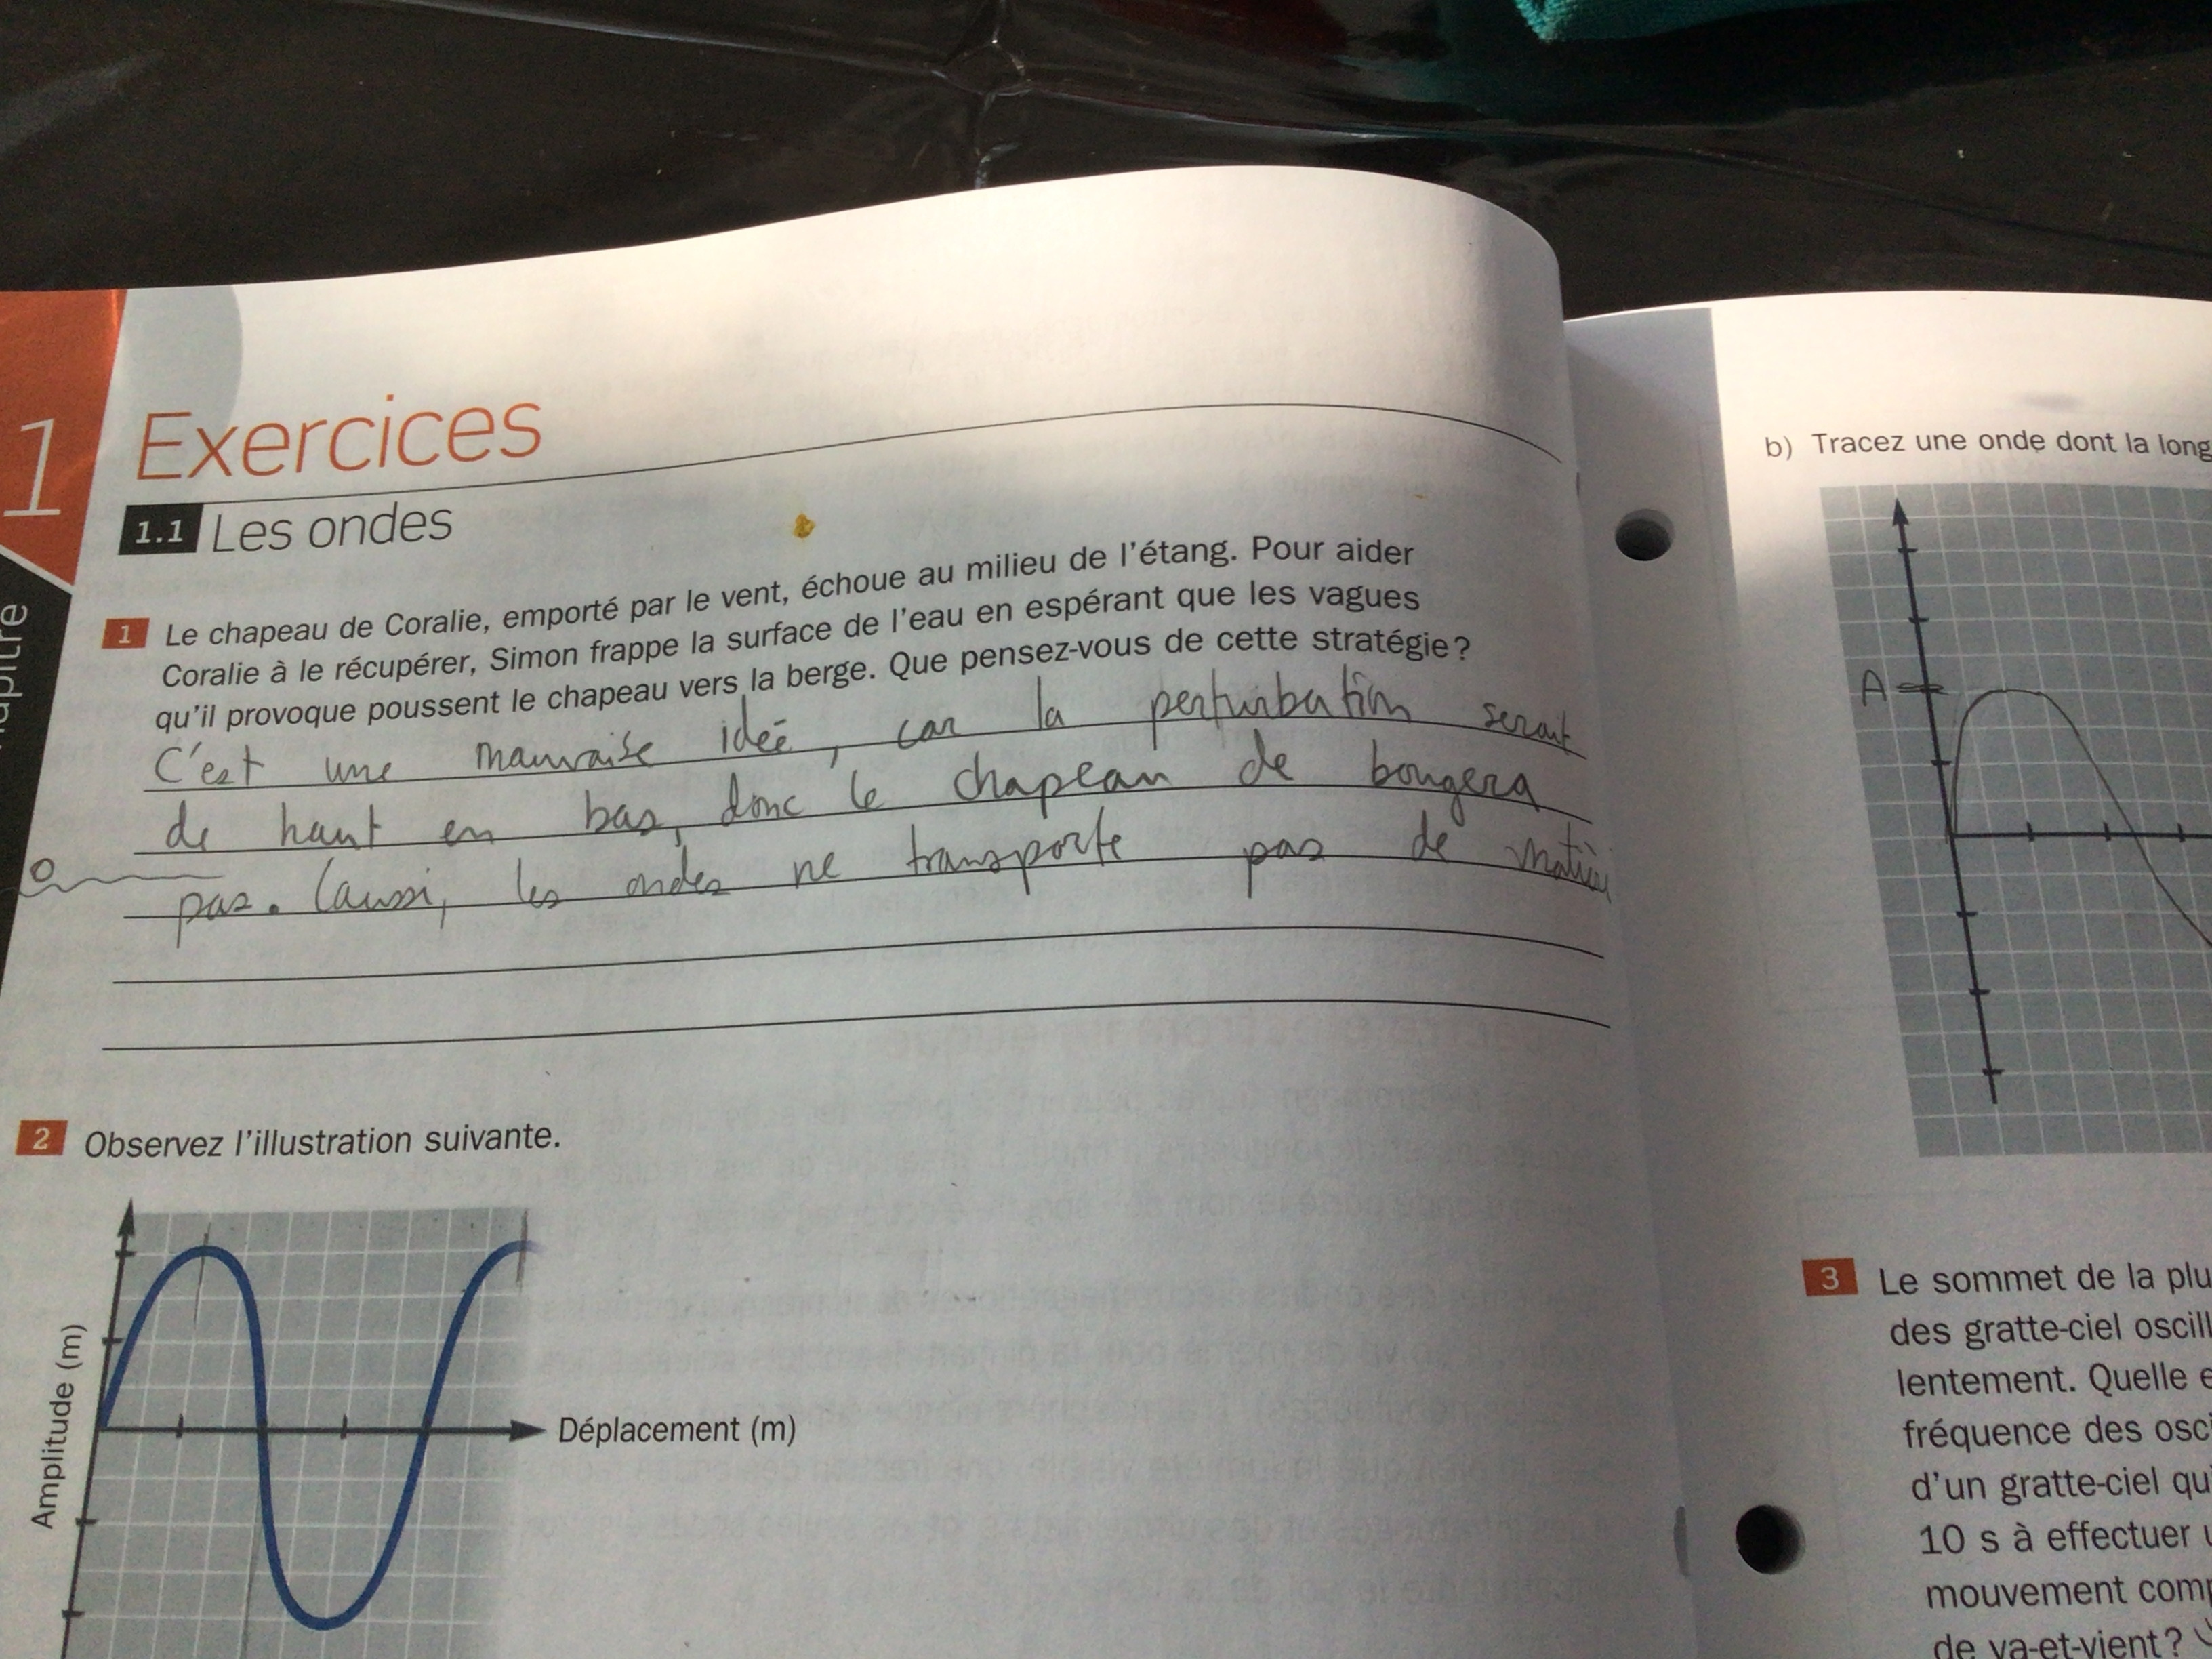 1
Exercices
1.1 Les ondes
1 Le chapeau de Coralie, emporté par le vent, échoue au milieu de l'étang. Pour aider
Coralie à le récupérer, Simon frappe la surface de l'eau en espérant que les vagues
qu'il provoque poussent le chapeau vers la berge. Que pensez-vous de cette stratégie?
C'est une mauvaise idée, car la perturbation serait
de haut en bas, donc le chapeau de bougera
pas. (aussi, les ondes ne transporte pas de
2 Observez l'illustration suivante.
Amplitude (m)
Déplacement (m)
b) Tracez une onde dont la long
A
3 Le sommet de la plu
des gratte-ciel oscill
lentement. Quelle e
fréquence des osc
d'un gratte-ciel qu
10 s à effectuer
mouvement com
de va-et-vient?